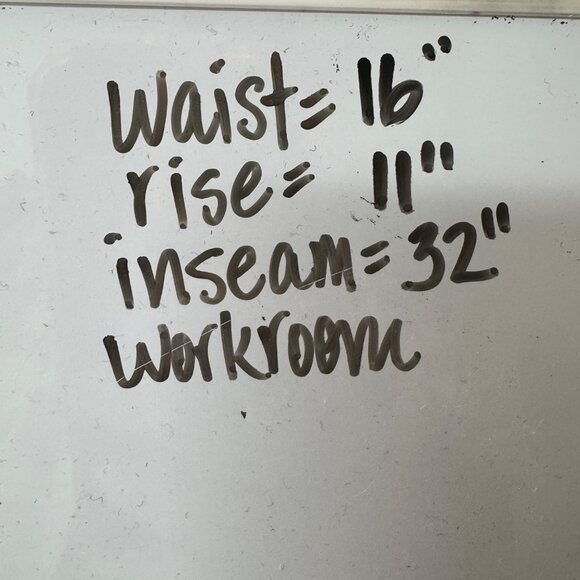 Waist= 16"
rise= 11"
inseam= 32"
Workroom